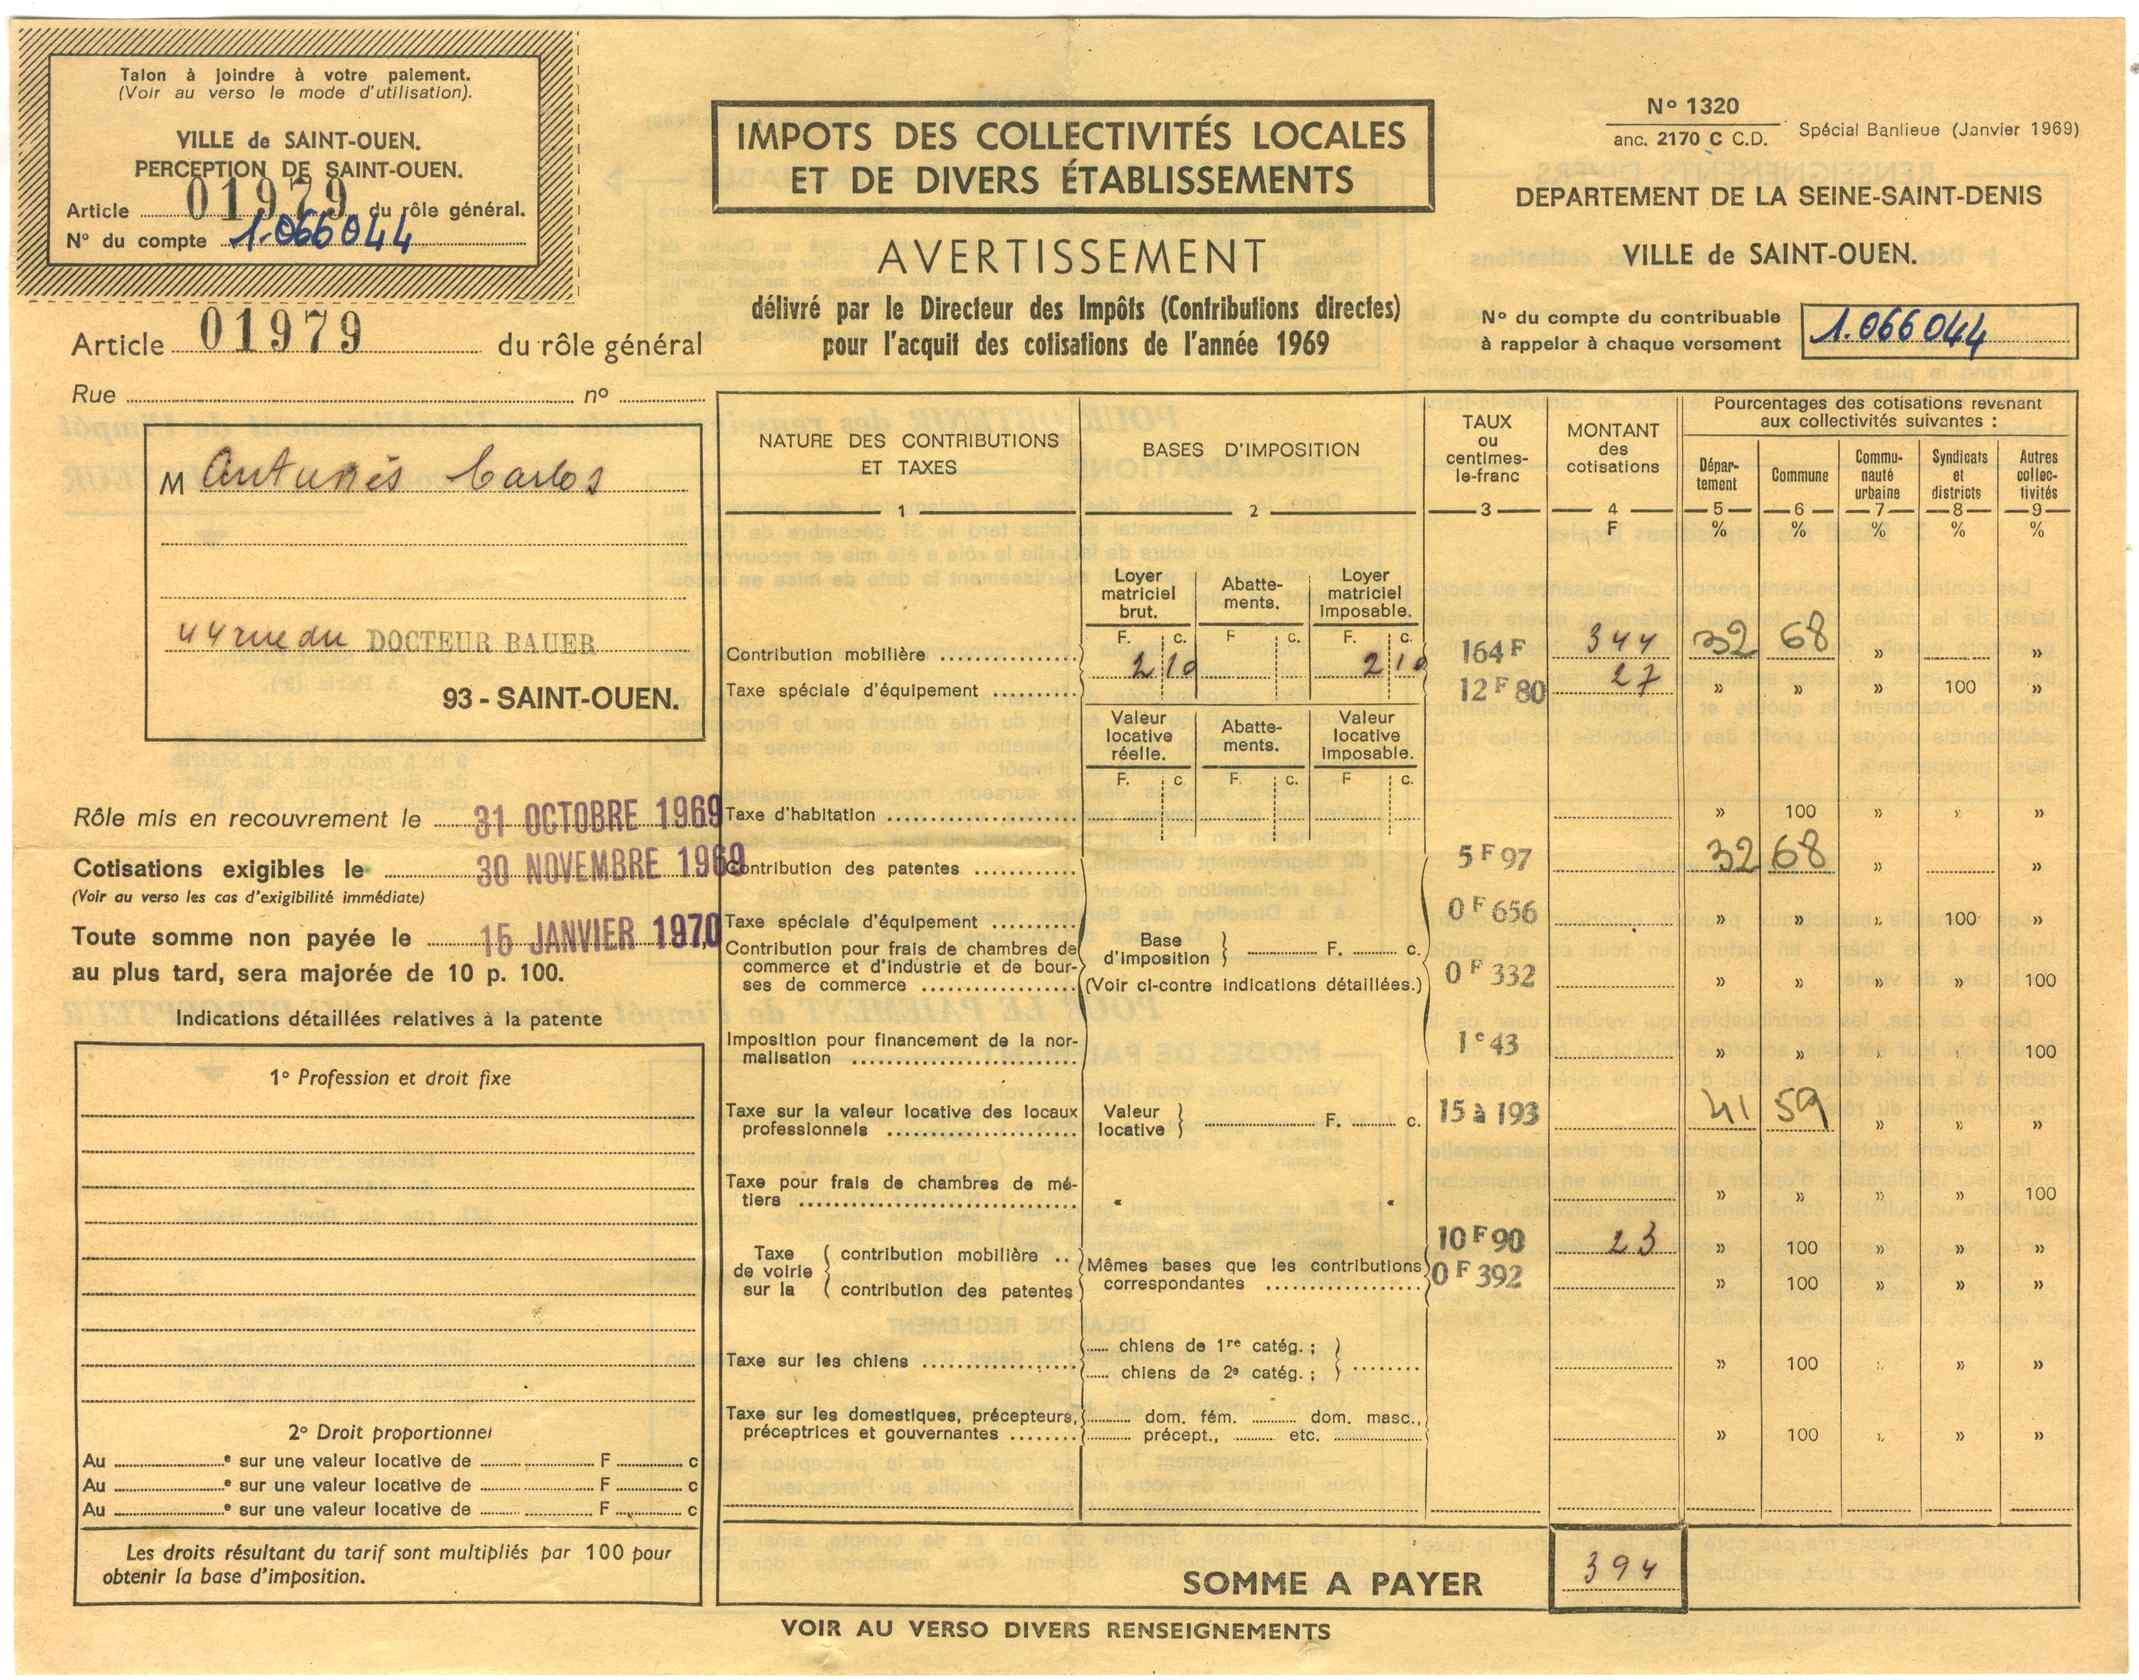 Talon à joindre à votre paiement.
(Voir au verso le mode d'utilisation).
VILLE de SAINT-OUEN.
PERCEPTION DE SAINT-OUEN.
Article 01979 du rôle général.
N° du compte 1.066044
IMPOTS DES COLLECTIVITÉS LOCALES
ET DE DIVERS ÉTABLISSEMENTS
AVERTISSEMENT
délivré par le Directeur des Impôts (Contributions directes)
pour l'acquit des cotisations de l'année 1969
N° 1320
anc. 2170 C C.D.
Spécial Banlieue (Janvier 1969)
DEPARTEMENT DE LA SEINE-SAINT-DENIS
VILLE de SAINT-OUEN.
N° du compte du contribuable
à rappeler à chaque versement
1.066044
Article 01979 du rôle général
Rue n°
M Antunès Carlos
44 rue du DOCTEUR BAUER
93 - SAINT-OUEN.
Rôle mis en recouvrement le 31 OCTOBRE 1969
Cotisations exigibles le 30 NOVEMBRE 1969
(Voir au verso les cas d'exigibilité immédiate)
Toute somme non payée le 15 JANVIER 1970
au plus tard, sera majorée de 10 p. 100.
Indications détaillées relatives à la patente
1° Profession et droit fixe
2° Droit proportionnel
Au e sur une valeur locative de F c
Au e sur une valeur locative de F c
Au e sur une valeur locative de F c
Les droits résultant du tarif sont multipliés par 100 pour
obtenir la base d'imposition.
NATURE DES CONTRIBUTIONS
ET TAXES
1
BASES D'IMPOSITION
2
TAUX
ou
centimes-
le-franc
3
MONTANT
des
cotisations
4
F
Pourcentages des cotisations revenant
aux collectivités suivantes :
Dépar-
tement
5
%
Commune
6
%
Commu-
nauté
urbaine
7
%
Syndicats
et
districts
8
%
Autres
collec-
tivités
9
%
Loyer
matriciel
brut.
Abatte-
ments.
Loyer
matriciel
imposable.
F. c. F c. F. c.
Contribution mobilière 210 210 164 F 344 32 68 » »
Taxe spéciale d'équipement 12 F 80 27 » » » 100 »
Valeur
locative
réelle.
Abatte-
ments.
Valeur
locative
imposable.
F. c F. c. F c.
Taxe d'habitation » 100 » » »
Contribution des patentes 5 F 97 32 68 » »
Taxe spéciale d'équipement 0 F 656 » » » 100 »
Contribution pour frais de chambres de
commerce et d'industrie et de bour-
ses de commerce
Base
d'imposition } F. c.
(Voir ci-contre indications détaillées.)
0 F 332 » » » » 100
Imposition pour financement de la nor-
malisation 1 c 43 » » » » 100
Taxe sur la valeur locative des locaux
professionnels
Valeur
locative } F. c.
15 à 193 41 59 » » »
Taxe pour frais de chambres de mé-
tiers » » » » 100
Taxe
de voirie
sur la
contribution mobilière 10 F 90 23 » 100 » » »
Mêmes bases que les contributions
correspondantes
contribution des patentes 0 F 392 » 100 » » »
Taxe sur les chiens
chiens de 1re catég. ;
chiens de 2e catég. ;
» 100 » » »
Taxe sur les domestiques, précepteurs,
préceptrices et gouvernantes
dom. fém. dom. masc.,
précept., etc.
» 100 » » »
SOMME A PAYER 394
VOIR AU VERSO DIVERS RENSEIGNEMENTS